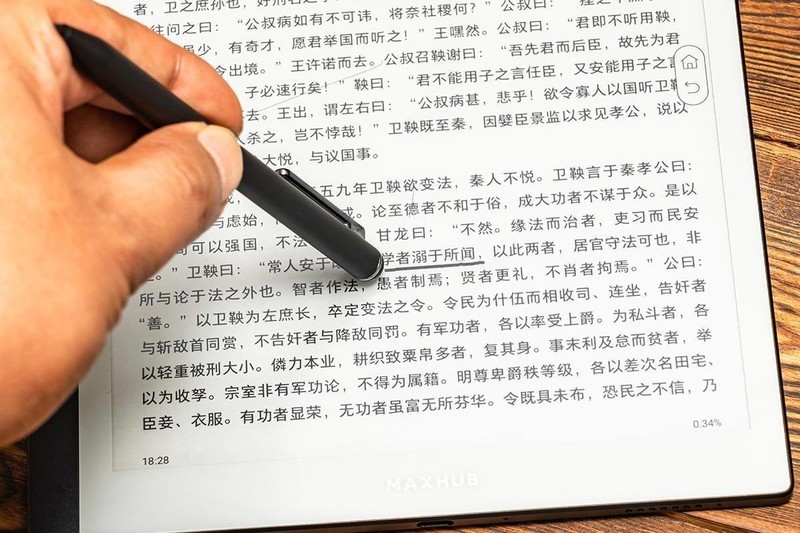 者，卫之庶孙也，好刑名之
往问之曰：“公叔病如有不可讳，将奈社稷何？”公叔曰：
虽少，有奇才，愿君举国而听之！”王嘿然。公叔曰：“君即不听用鞅，
令出境。”王许诺而去。公叔召鞅谢曰：“吾先君而后臣，故先为君
子必速行矣！”鞅曰：“君不能用子之言任臣，又安能用子之言
去。王出，谓左右曰：“公叔病甚，悲乎！欲令寡人以国听卫鞅
人杀之，岂不悖哉！”卫鞅既至秦，因嬖臣景监以求见孝公，说以
大悦，与议国事。
五九年卫鞅欲变法，秦人不悦。卫鞅言于秦孝公曰：
与虑始，成。论至德者不和于俗，成大功者不谋于众。是以
可以强国，不法甘龙曰：“不然。缘法而治者，吏习而民安
”卫鞅曰：“常人安于学者溺于所闻，以此两者，居官守法可也，非
所与论于法之外也。智者作法，愚者制焉；贤者更礼，不肖者拘焉。”公曰：
“善。”以卫鞅为左庶长，卒定变法之令。令民为什伍而相收司、连坐，告奸者
与斩敌首同赏，不告奸者与降敌同罚。有军功者，各以率受上爵。为私斗者，各
以轻重被刑大小。僇力本业，耕织致粟帛多者，复其身。事末利及怠而贫者，举
以为收孥。宗室非有军功论，不得为属籍。明尊卑爵秩等级，各以差次名田宅、
臣妾、衣服。有功者显荣，无功者虽富无所芬华。令既具未布，恐民之不信，乃
18:28
0.34%
MAXHUB